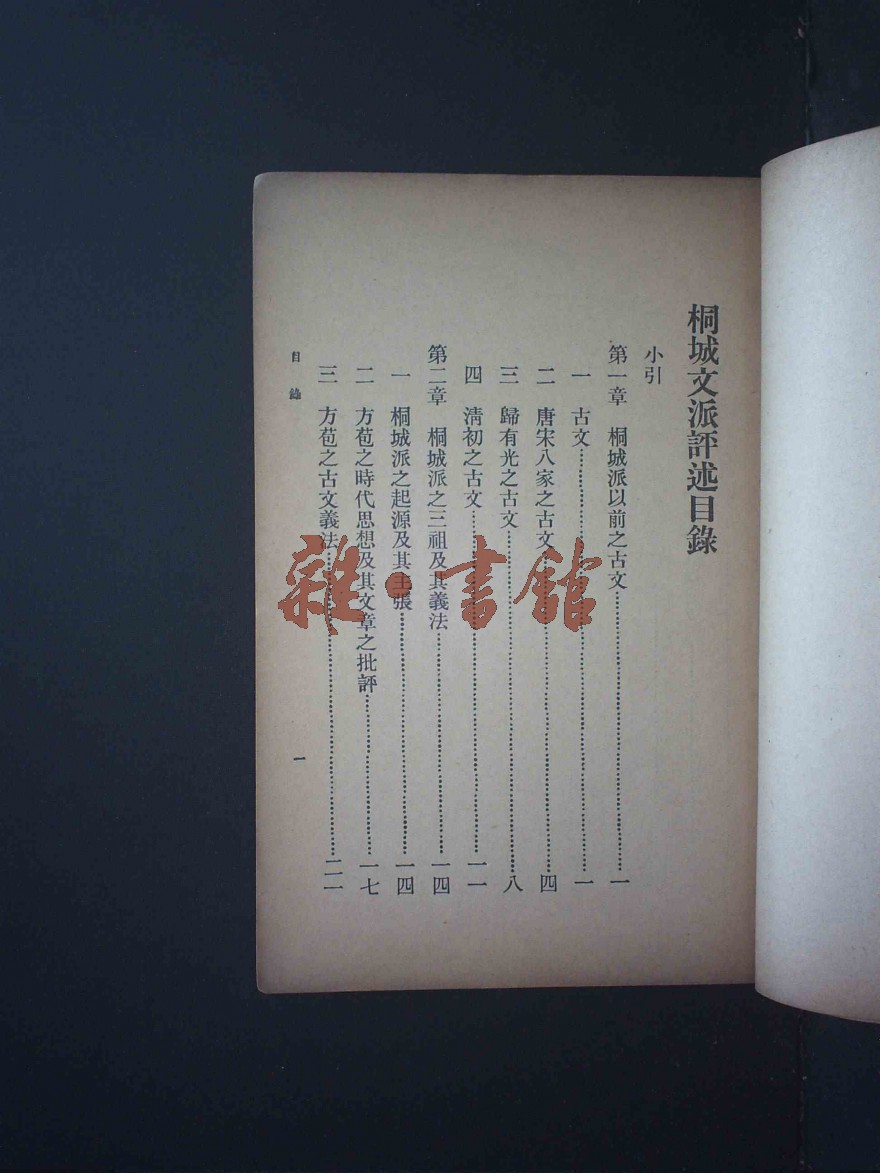 桐城文派評述目錄
小引
第一章 桐城派以前之古文……一
一 古文……一
二 唐宋八家之古文……四
三 歸有光之古文……八
四 淸初之古文……一一
第二章 桐城派之三祖及其義法……一四
一 桐城派之起源及其主張……一四
二 方苞之時代思想及其文章之批評……一七
三 方苞之古文義法……二一
目錄 一
雜·書館